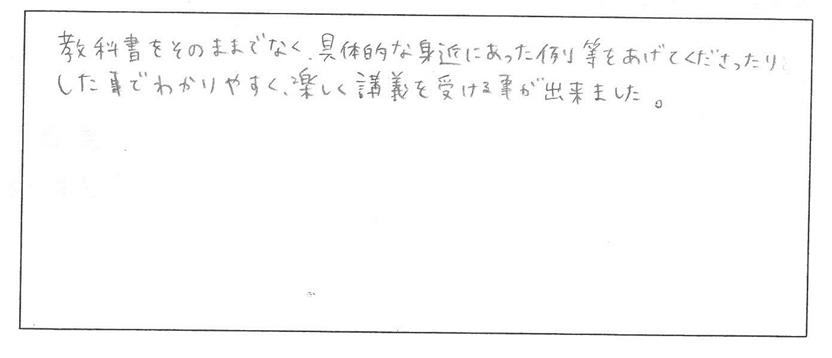 教科書をそのままでなく、具体的な身近にあった例り等をあげてくださったり
した事でわかりやすく、楽しく講義を受ける事が出来ました。